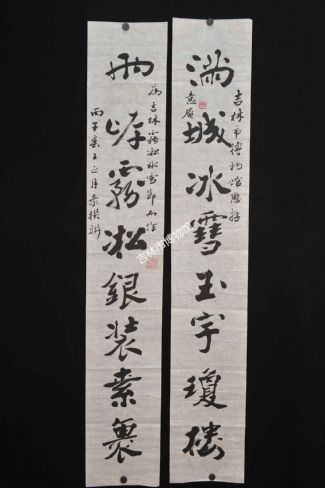 满城冰雪玉宇琼楼
吉林市博物馆惠存
两岸雾松银装素裹
为吉林雾松冰雪节而作
丙子年正月
吉林市博物馆